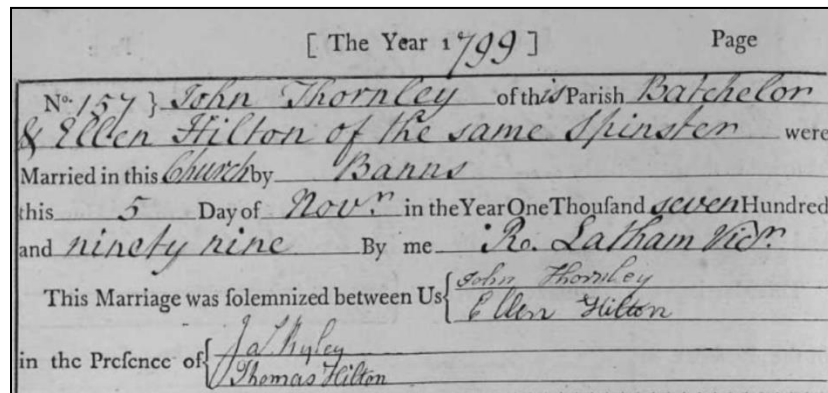 [ The Year 1799 ] Page
No. 157 } John Thornley of this Parish Batchelor
& Ellen Hilton of the same Spinster were
Married in this Church by Banns
this 5 Day of Novr. in the Year One Thouſand seven Hundred
and ninety nine By me R. Latham Vicr.
This Marriage was ſolemnized between Us { John Thornley
Ellen Hilton
in the Preſence of { Jas. Ryley
Thomas Hilton